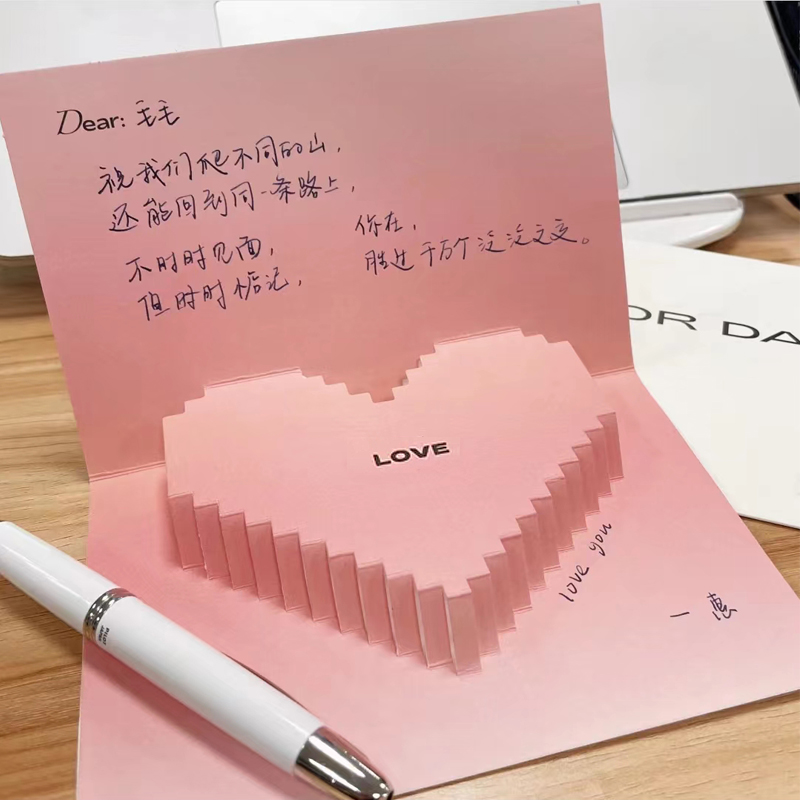 Dear: 毛毛
祝我们爬不同的山，
还能回到同一条路上，
不时时见面，
但时时惦记，
你在，
胜过千万个泛泛之交。
LOVE
love you
一 惠
OR DA